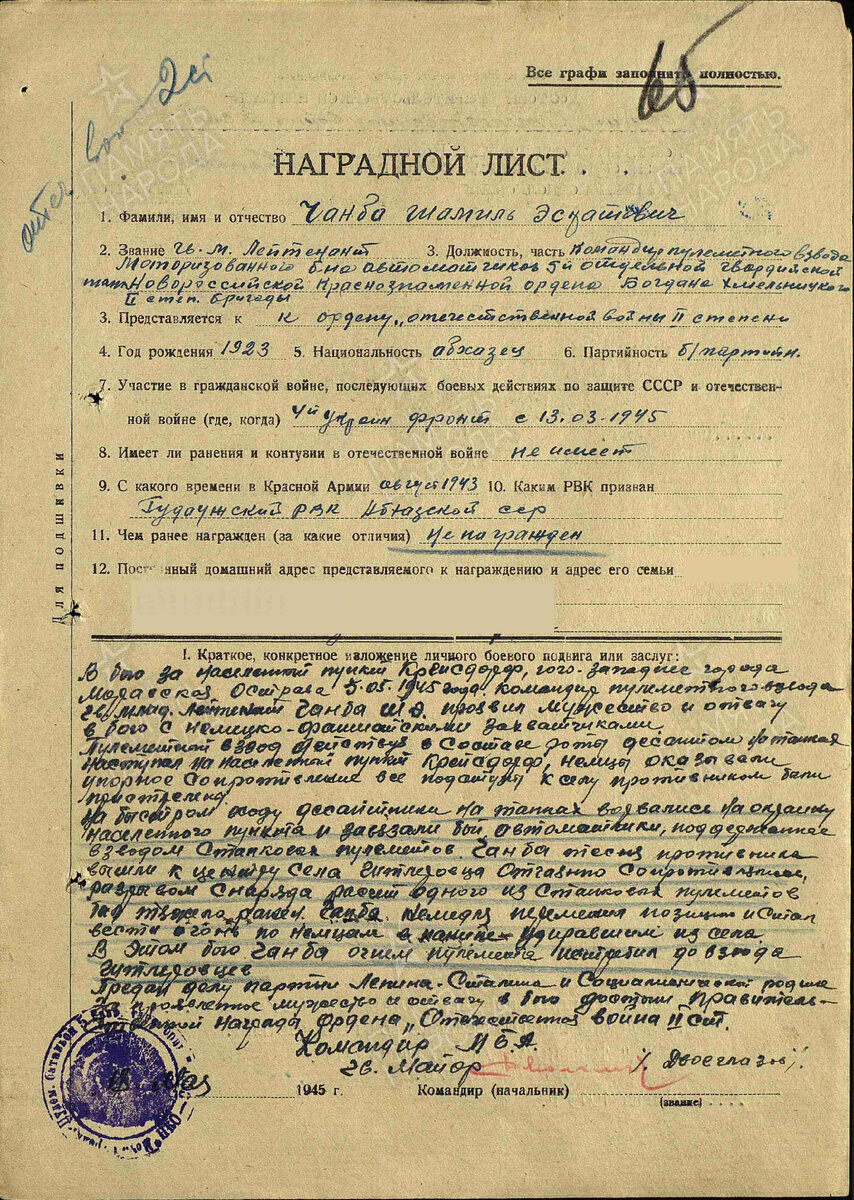 отеч вой 2 ст
65
Все графи заполнять полностью.
НАГРАДНОЙ ЛИСТ.
1. Фамили, имя и отчество Чанба Шамиль
2. Звание гв. м. Лейтенант 3. Должность, часть Командир пулеметного взвода
Моторизованного б-на автоматчиков 5й отдельной гвардийской
Новороссийской Краснознаменной ордена Богдана Хмельницкого
II степ. бригады
3. Представляется к к ордену „отечественной войны II степени
4. Год рождения 1923 5. Национальность абхазец 6. Партийность б/партийн.
7. Участие в гражданской войне, последующих боевых действиях по защите СССР и отечествен-
ной войне (где, когда) 4й украин фронт с 13.03.1945
8. Имеет ли ранения и контузии в отечественной войне не имеет
9. С какого времени в Красной Армии август 1943 10. Каким РВК призван
РВК сср
11. Чем ранее награжден (за какие отличия) не награжден
12. домашний адрес представляемого к награждению и адрес его семьи
Для подшивки
I. Краткое, конкретное изложение личного боевого подвига или заслуг:
В бою за населенный пункт Крейсдорф, юго-западнее города
Моравской Острава 5.05.1945 года, командир пулеметного взвода
гв. млад. лейтенант Чанба Ш.Э. проявил мужество и отвагу
в бою с немецко-фашистскими захватчиками
Пулеметный взвод действуя в составе роты десантом на танках
наступал на населенный пункт Крейсдорф, немцы оказывали
упорное сопротивление все подступы к селу противником были
пристрелены.
На быстром ходу десантники на танках ворвались на окраину
населенного пункта и завязали бой, автоматчики, поддержанные
взводом станковых пулеметов Чанба тесня противника
вышли к центру села гитлеровца отчаянно сопротивлялись,
разрывом снаряда расчет одного из станковых пулеметов
был тяжело ранен Чанба немедля переменил позицию и стал
вести огонь по немцам удиравшим из села
В этом бою Чанба огнем пулемета истребил до взвода
гитлеровцев
Предан делу партии Ленина-Сталина и Социалистической родине
За проявленное мужество и отвагу в бою достоин правитель-
ственной награда, ордена „Отечественная война II ст.
Командир МБА
гв. Майор /Двоеглазов/.
18 май 1945 г. Командир (начальник)
(звание)
ПАМЯТЬ НАРОДА